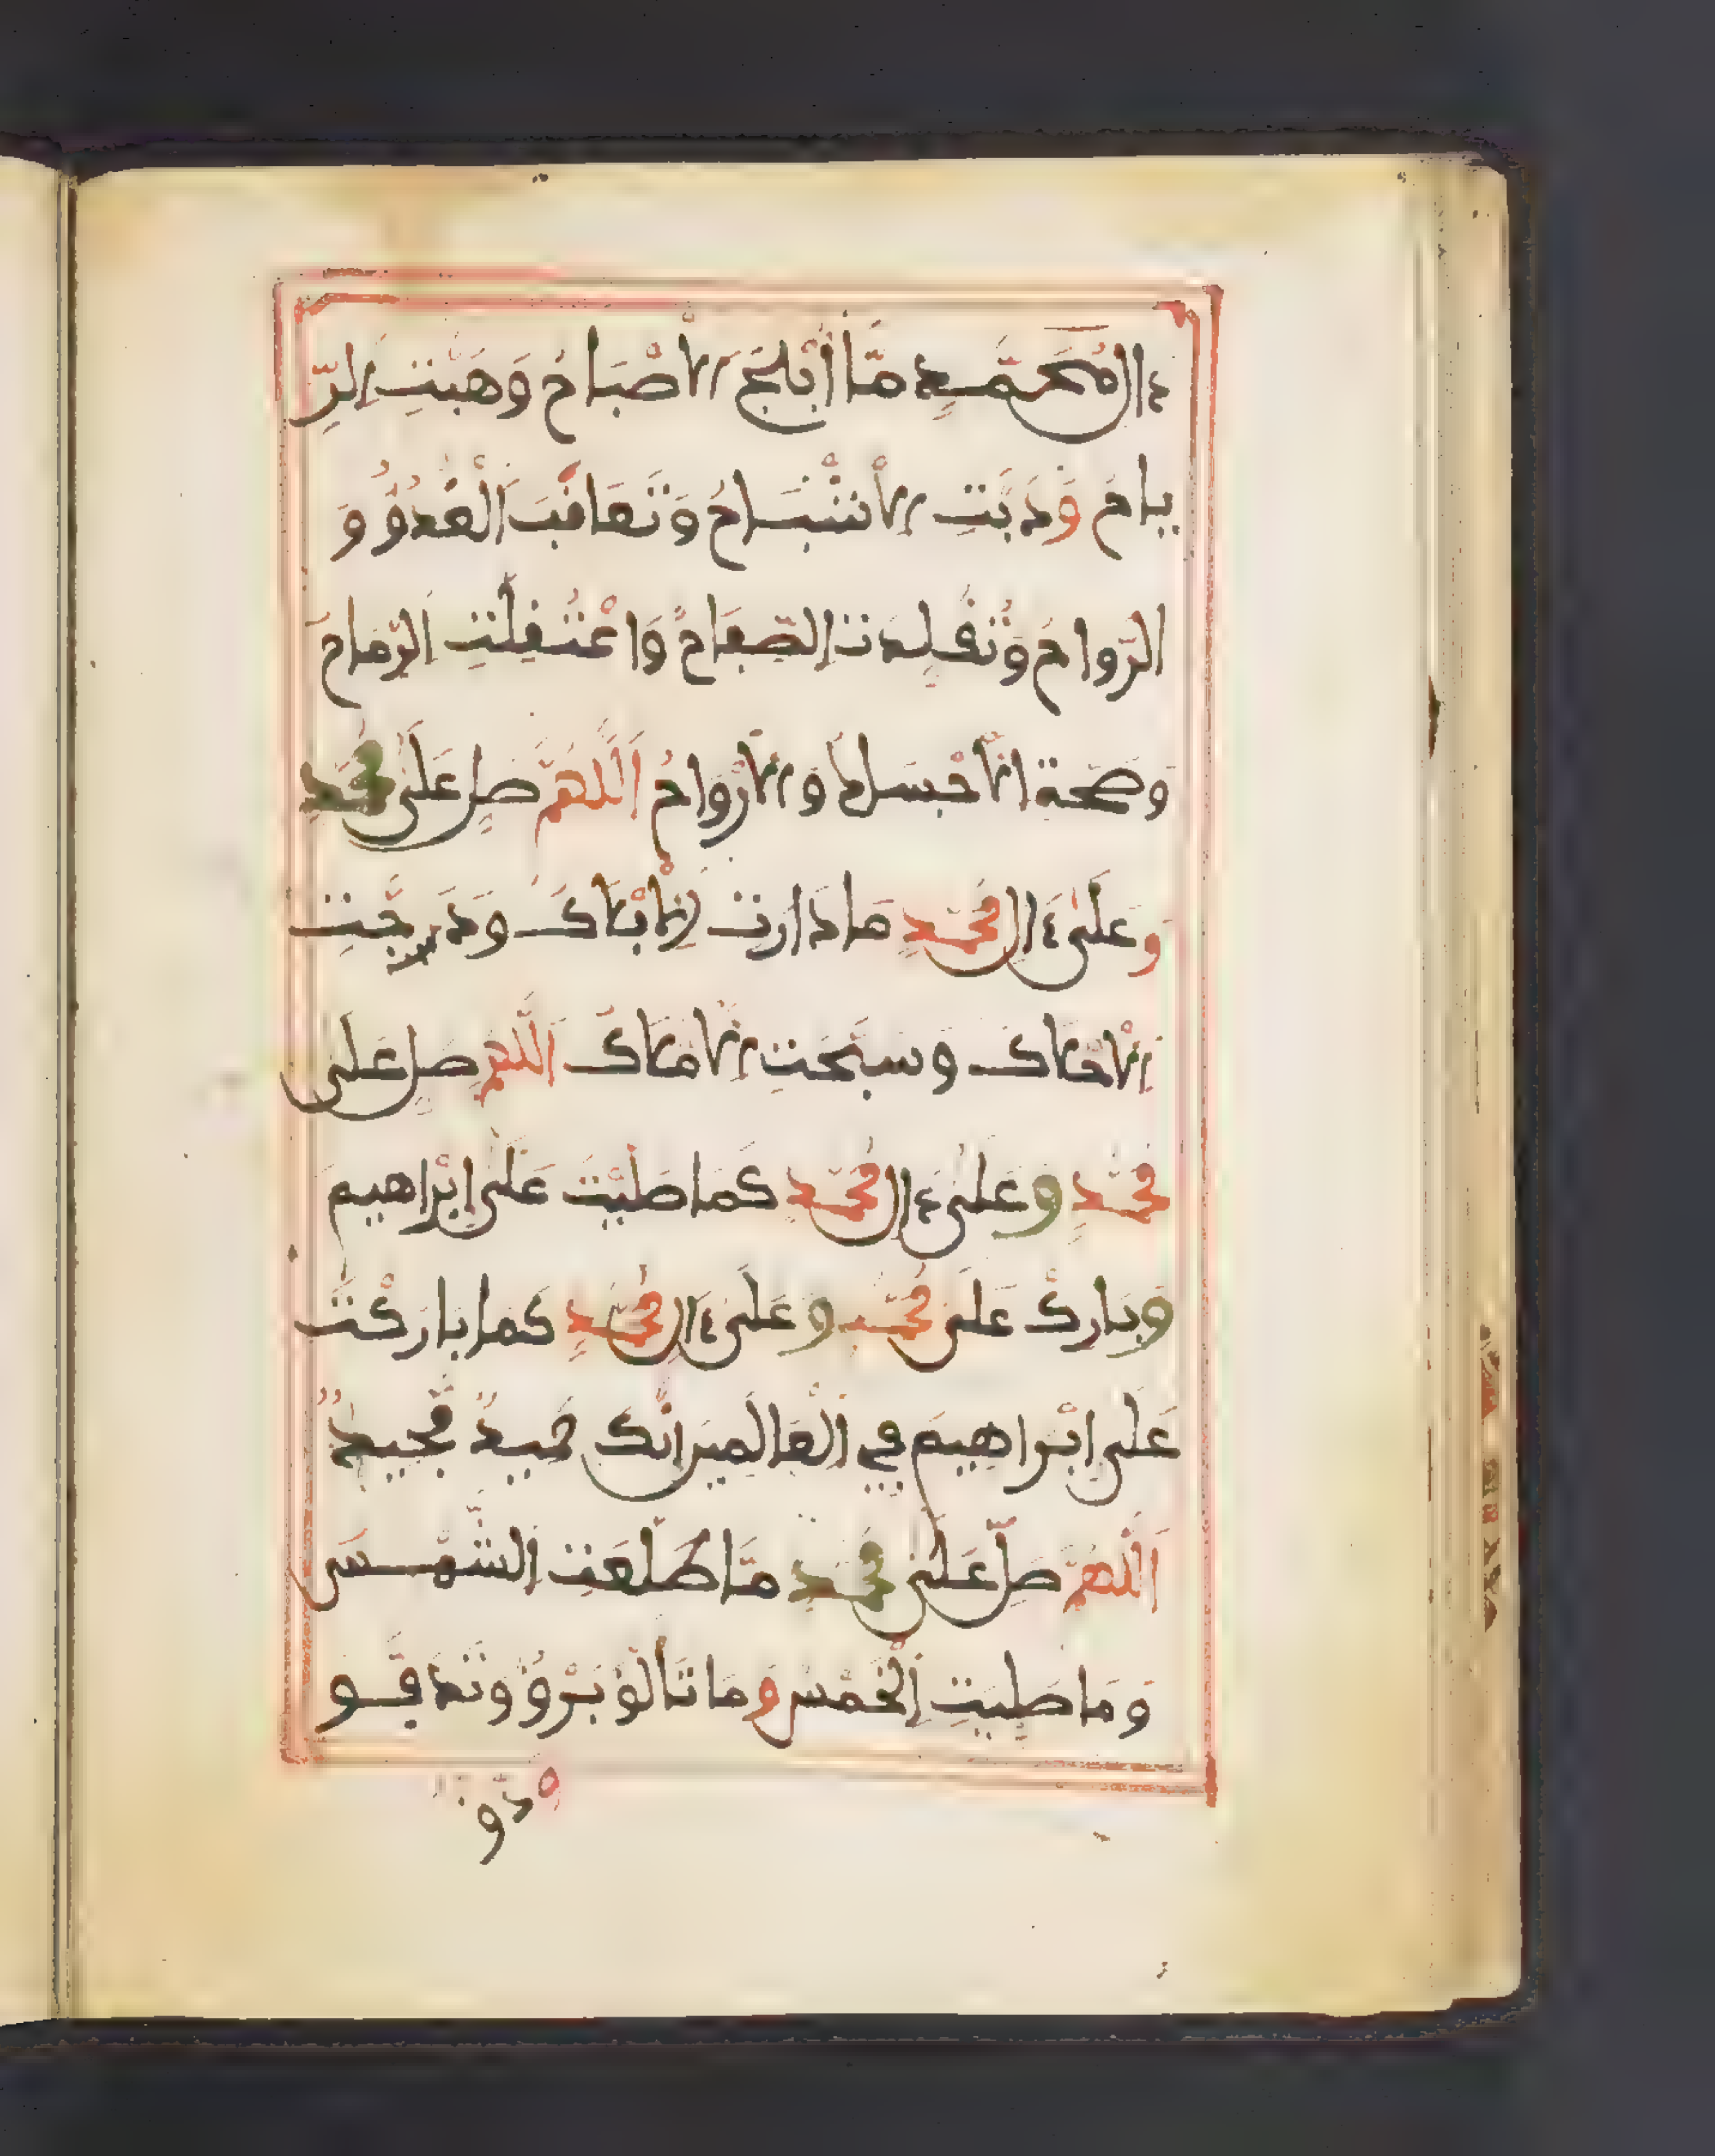 ءال مُحَمَّدٍ مَّا أَبْلَجَ الْأَصْبَاحُ وَهَبَّتِ الرِّ
يَاحُ وَدَبَّتِ الْأَشْبَاحُ وَتَعَاقَبَ الْغُدُوُّ وَ
الرَّوَاحُ وَتُقُلِّدَتِ الصِّفَاحُ وَاعْتُقِلَتِ الرِّمَاحُ
وَصَحَّةِ الْأَجْسَادُ وَالْأَرْوَاحُ اَللَّهُمَّ صَلِّ عَلَى مُحَمَّدٍ
وَعَلَى ءال مُحَمَّدٍ مَا دَارَتِ الْأَفْلَاكُ وَدَجَتِ
الْأَحْلَاكُ وَسَبَّحَتِ الْأَمْلَاكُ اَللَّهُمَّ صَلِّ عَلَى
مُحَمَّدٍ وَعَلَى ءال مُحَمَّدٍ كَمَا صَلَّيْتَ عَلَى إِبْرَاهِيمَ
وَبَارِكْ عَلَى مُحَمَّدٍ وَعَلَى ءال مُحَمَّدٍ كَمَا بَارَكْتَ
عَلَى إِبْرَاهِيمَ فِي الْعَالَمِينَ إِنَّكَ حَمِيدٌ مَّجِيدٌ
اَللَّهُمَّ صَلِّ عَلَى مُحَمَّدٍ مَّا طَلَعَتِ الشَّمْسُ
وَمَا صُلِّيَتِ الْخَمْسُ وَمَا تَأَلَّقَ بَرْقٌ وَتَدَفَّقَ و
دْقٌ